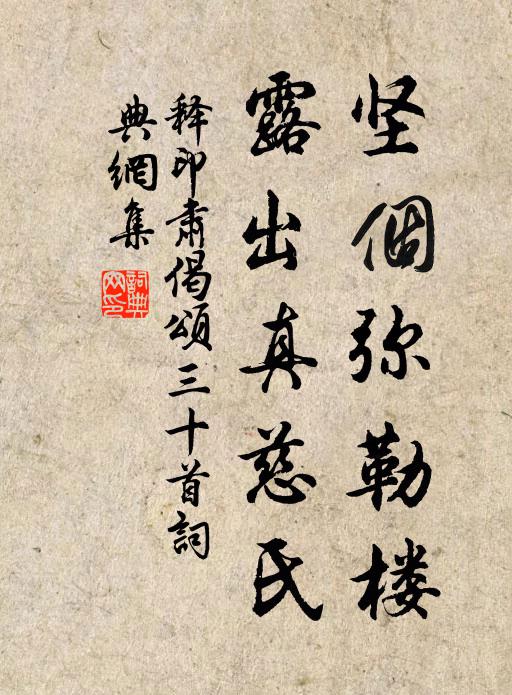 坚個弥勒楼
露出真慈氏
释印肃偈颂三十首詞
典網集
詞典
网印